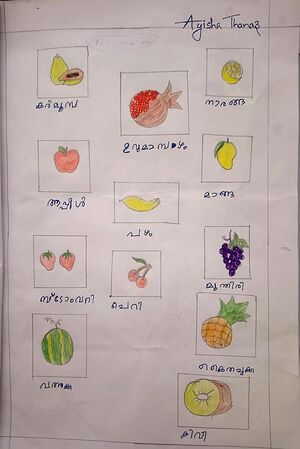 Ayisha Thanaz
കർമൂസ
ഉറുമാമ്പഴം
നാരങ്ങ
ആപ്പിൾ
മാങ്ങ
പഴം
സ്ട്രോബറി
ചെറി
മുന്തിരി
കൈതച്ചക്ക
വത്തക്ക
കിവി